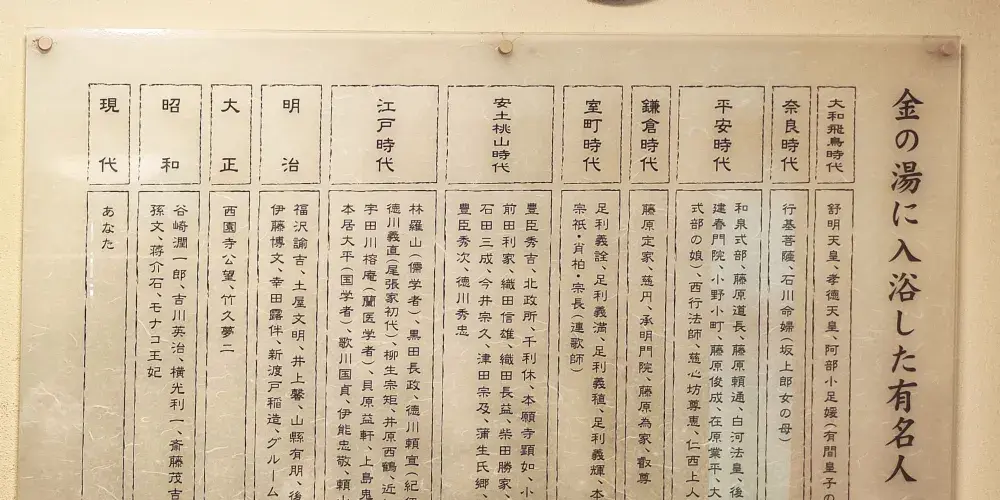 金の湯に入浴した有名人
大和飛鳥時代
舒明天皇、孝徳天皇、阿部小足媛(有間皇子の
奈良時代
行基菩薩、石川命婦(坂上郎女の母)
平安時代
和泉式部、藤原道長、藤原頼通、白河法皇、後
建春門院、小野小町、藤原俊成、在原業平、大
式部の娘)、西行法師、慈心坊尊恵、仁西上人
鎌倉時代
藤原定家、慈円、承明門院、藤原為家、叡尊
室町時代
足利義詮、足利義満、足利義稙、足利義輝、本
宗祇・肖柏・宗長(連歌師)
安土桃山時代
豊臣秀吉、北政所、千利休、本願寺顕如、小
前田利家、織田信雄、織田長益、柴田勝家、
石田三成、今井宗久、津田宗及、蒲生氏郷、
豊臣秀次、徳川秀忠
江戸時代
林羅山(儒学者)、黒田長政、徳川頼宣(紀
徳川義直(尾張家初代)、柳生宗矩、井原西鶴、近
宇田川榕庵(蘭医学者)、貝原益軒、上島鬼
本居大平(国学者)、歌川国貞、伊能忠敬、頼
明治
福沢諭吉、土屋文明、井上馨、山縣有朋、後
伊藤博文、幸田露伴、新渡戸稲造、グルーム
大正
西園寺公望、竹久夢二
昭和
谷崎潤一郎、吉川英治、横光利一、斎藤茂吉
孫文、蒋介石、モナコ王妃
現代
あなた